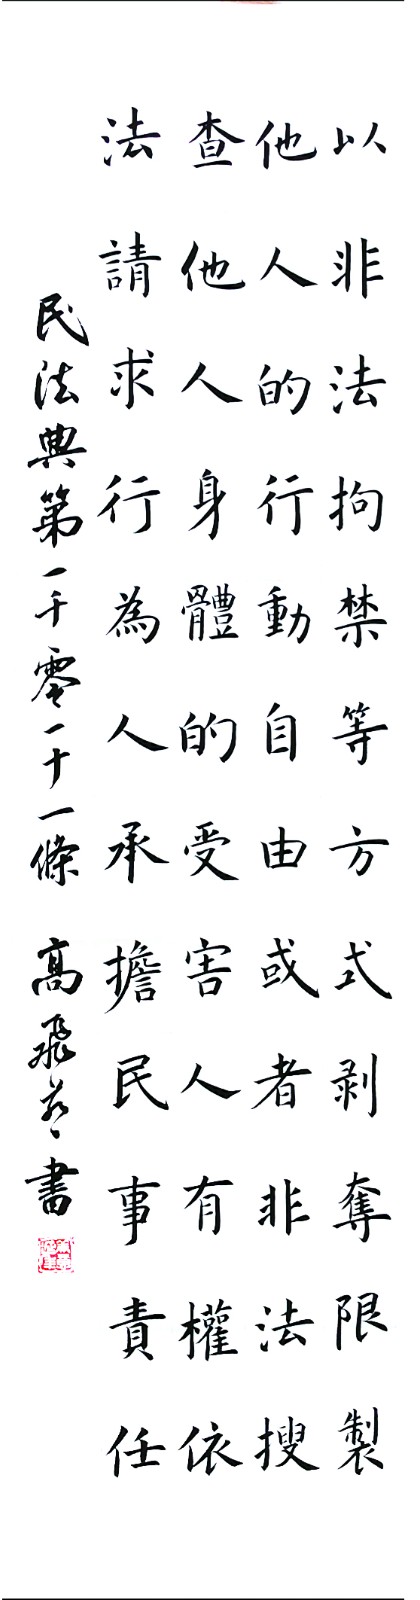 以非法拘禁等方式剥奪限製
他人的行動自由或者非法搜
查他人身體的受害人有權依
法請求行為人承擔民事責任
民法典第一千零一十一條 高飛 書